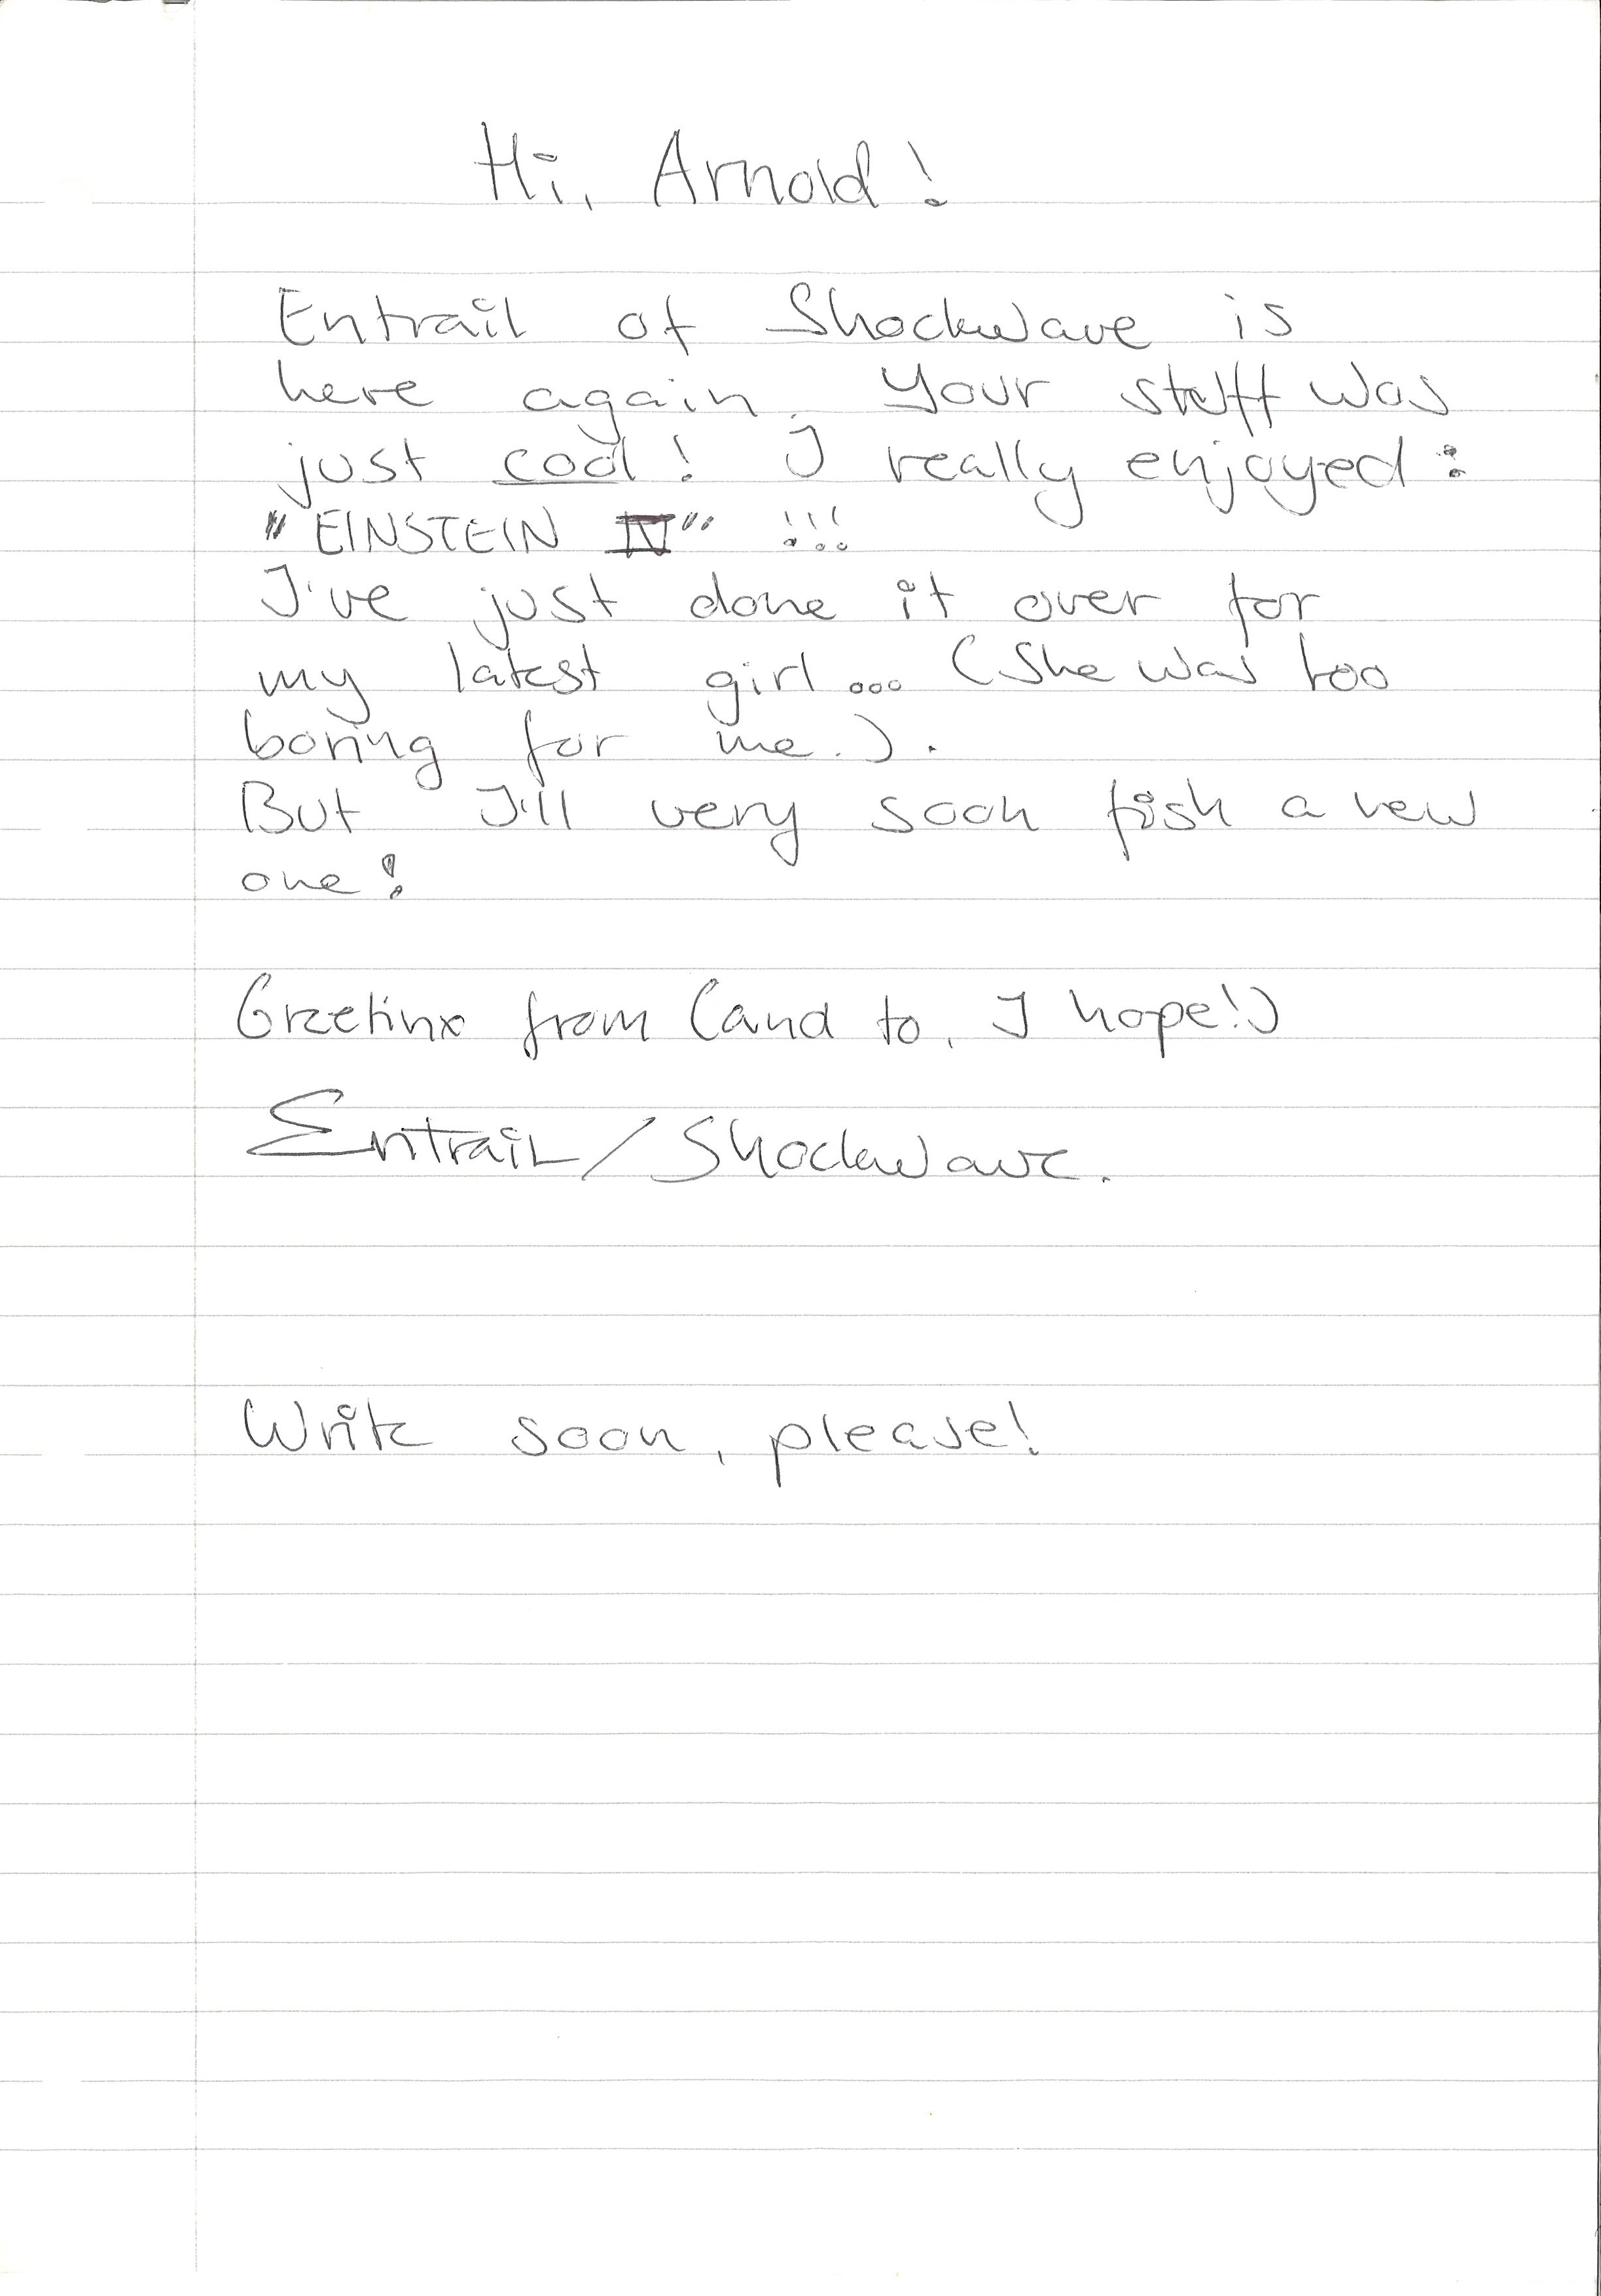 Hi, Arnold!
Entrail of Shockwave is
here again. Your stuff was
just cool! I really enjoyed:
"EINSTEIN IV" !!!
I've just done it over for
my latest girl... (She was too
boring for me.).
But I'll very soon fish a new
one!
Greetinx from (and to, I hope!)
Entrail/Shockwave.
Write soon, please!